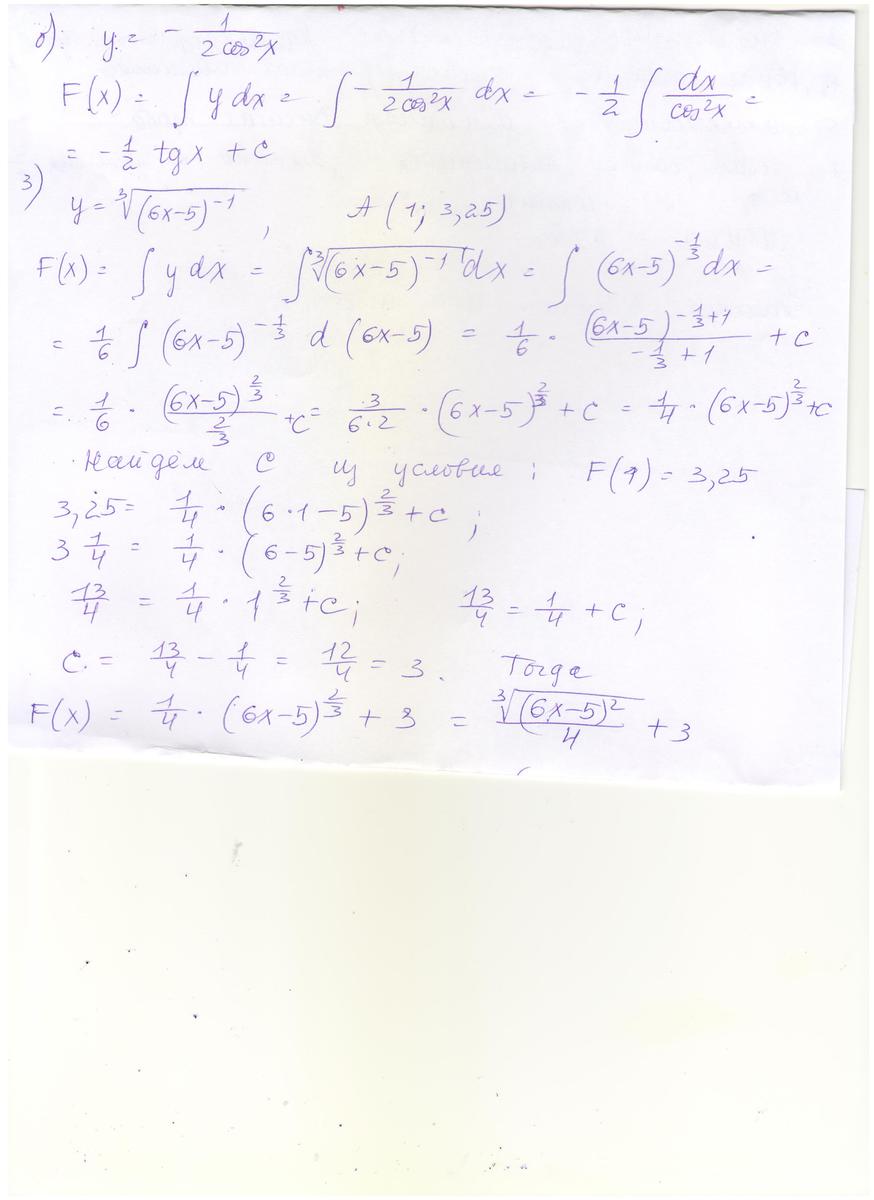 б) y = - 1/(2cos²x)
F(x) = ∫ y dx = ∫ - 1/(2cos²x) dx = - 1/2 ∫ dx/cos²x =
= - 1/2 tgx + C
3) y = ∛((6x-5)⁻¹) , A (1; 3,25)
F(x) = ∫ y dx = ∫ ∛((6x-5)⁻¹) dx = ∫ (6x-5)^(-1/3) dx =
= 1/6 ∫ (6x-5)^(-1/3) d (6x-5) = 1/6 · ((6x-5)^(-1/3+1))/(-1/3+1) + C
= 1/6 · ((6x-5)^(2/3))/(2/3) + C = 3/(6·2) · (6x-5)^(2/3) + C = 1/4 · (6x-5)^(2/3) + C
Найдём C из условия: F(1) = 3,25
3,25 = 1/4 · (6·1-5)^(2/3) + C ;
3 1/4 = 1/4 · (6-5)^(2/3) + C;
13/4 = 1/4 · 1^(2/3) + C; 13/4 = 1/4 + C;
C. = 13/4 - 1/4 = 12/4 = 3. Тогда
F(x) = 1/4 · (6x-5)^(2/3) + 3 = ∛((6x-5)²)/4 + 3